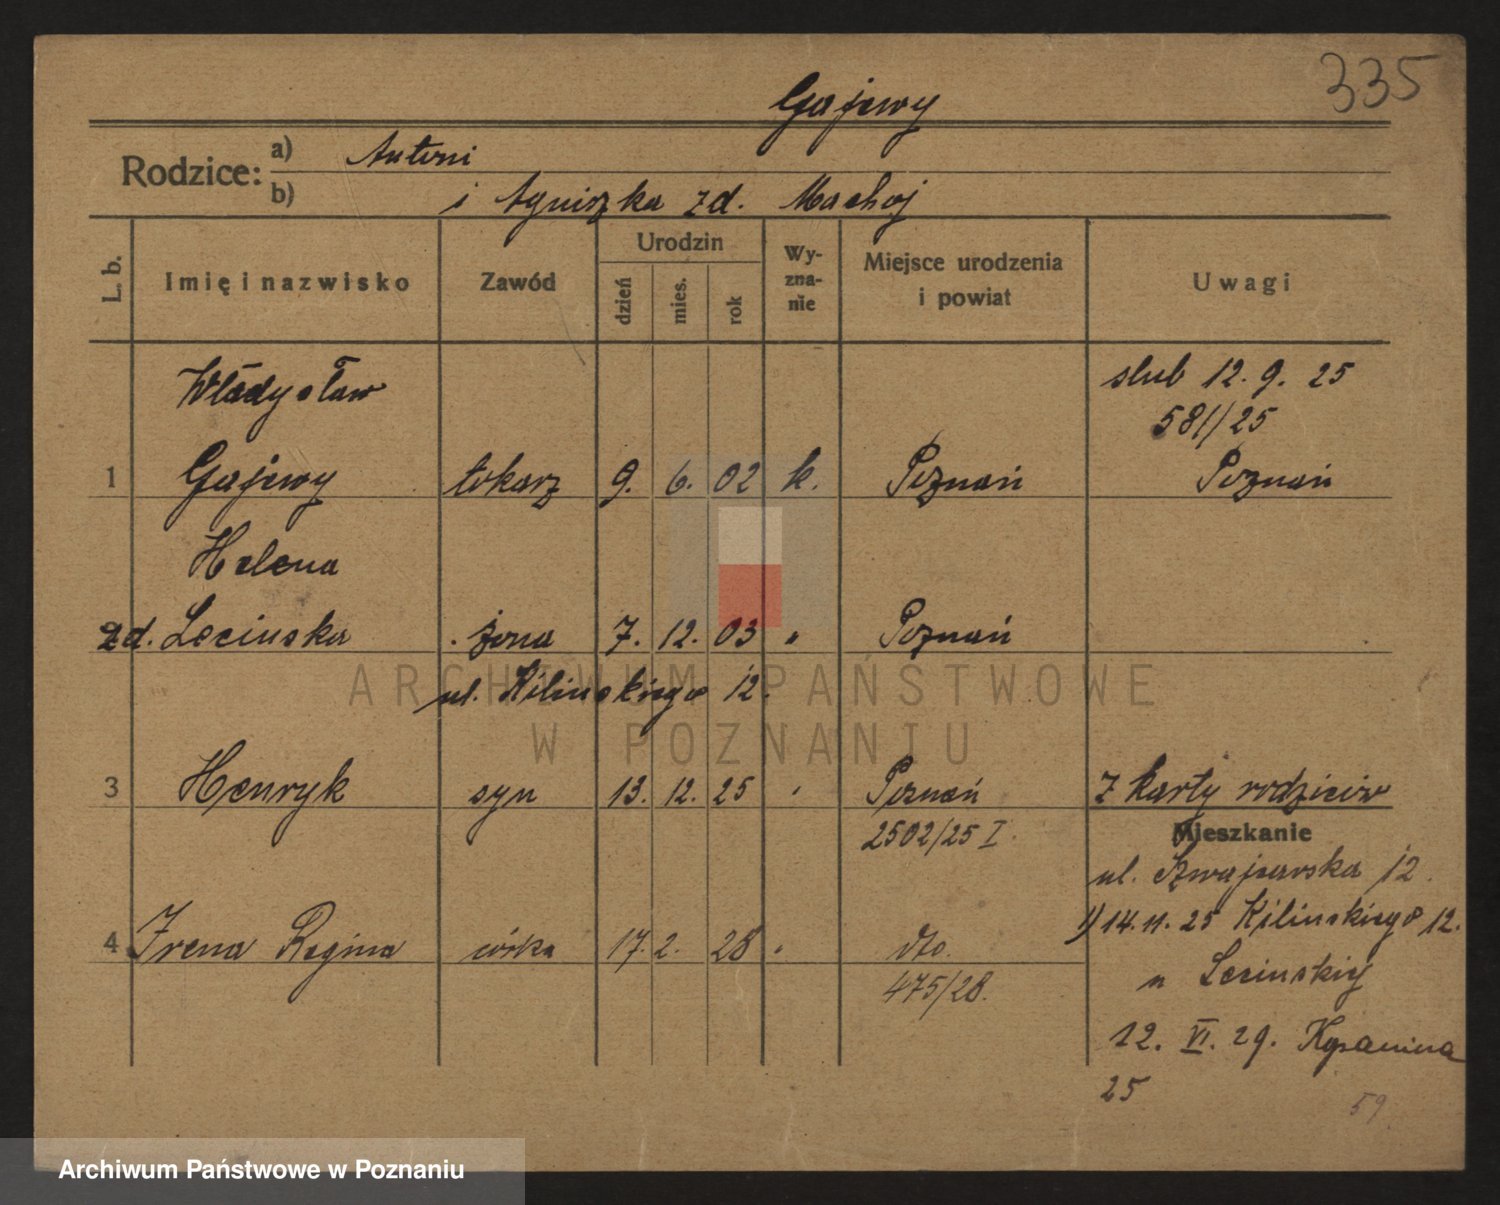 335
Gajewy
Rodzice: a) Antoni
b) i Agnieszka zd. Machoj
L. b.
Imię i nazwisko
Zawód
Urodzin
dzień
mies.
rok
Wy-
zna-
nie
Miejsce urodzenia
i powiat
Uwagi
Władysław
ślub 12. 9. 25
581/25
1 Gajewy tokarz 9. 6. 02 k. Poznań Poznań
Helena
zd. Lecinska żona 7. 12. 03 " Poznań
ul. Kilinskiego 12.
3 Henryk syn 13. 12. 25 " Poznań z karty rodziców
2502/25 I.
Mieszkanie
ul. Szwajcarska 12.
1) 14. 11. 25 Kilinskiego 12.
4 Irena Regina córka 17. 2. 28 " dto.
u Lecinskiej
475/28.
12. VI. 29.
25
59
ARCHIWUM PAŃSTWOWE
W POZNANIU
Archiwum Państwowe w Poznaniu